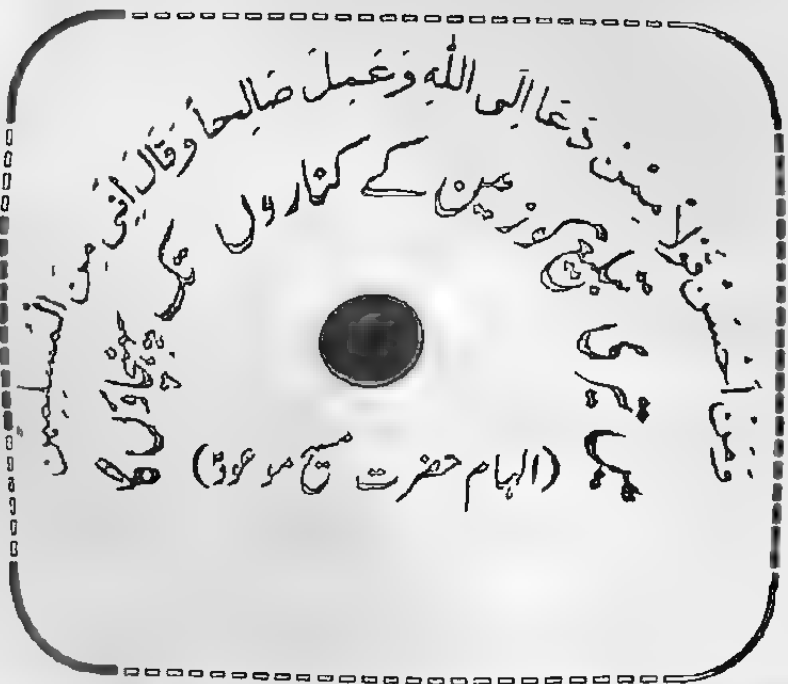 وَمَنْ اَحْسَنُ قَوْلًا مِّمَّنْ دَعَا اِلَى اللّٰهِ وَعَمِلَ صَالِحاً وَقَالَ اِنَّنِیْ مِنَ الْمُسْلِمِیْنَ
میں تیری تبلیغ کو زمین کے کناروں تک پہنچاؤں گا
(الہام حضرت مسیح موعودؑ)